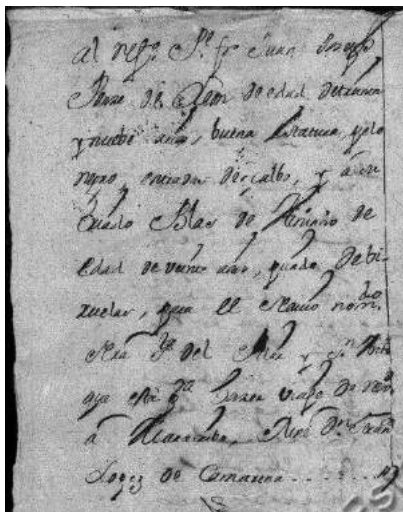 al refo. Pe. fr Juan Joseph
Ponze de Leon de edad de treinta
y nuebe años, buena estatura, pelo
negro, entradas de calbo, y á su
Criado Blas de Treviño de
edad de veinte años, picado de bi-
ruelas, para el Navio nombdo
Nra Sa. del Mar y Sn
que está pa. hazer viage de
á Maracaibo, Dn. Juan
Lopez de Camarena